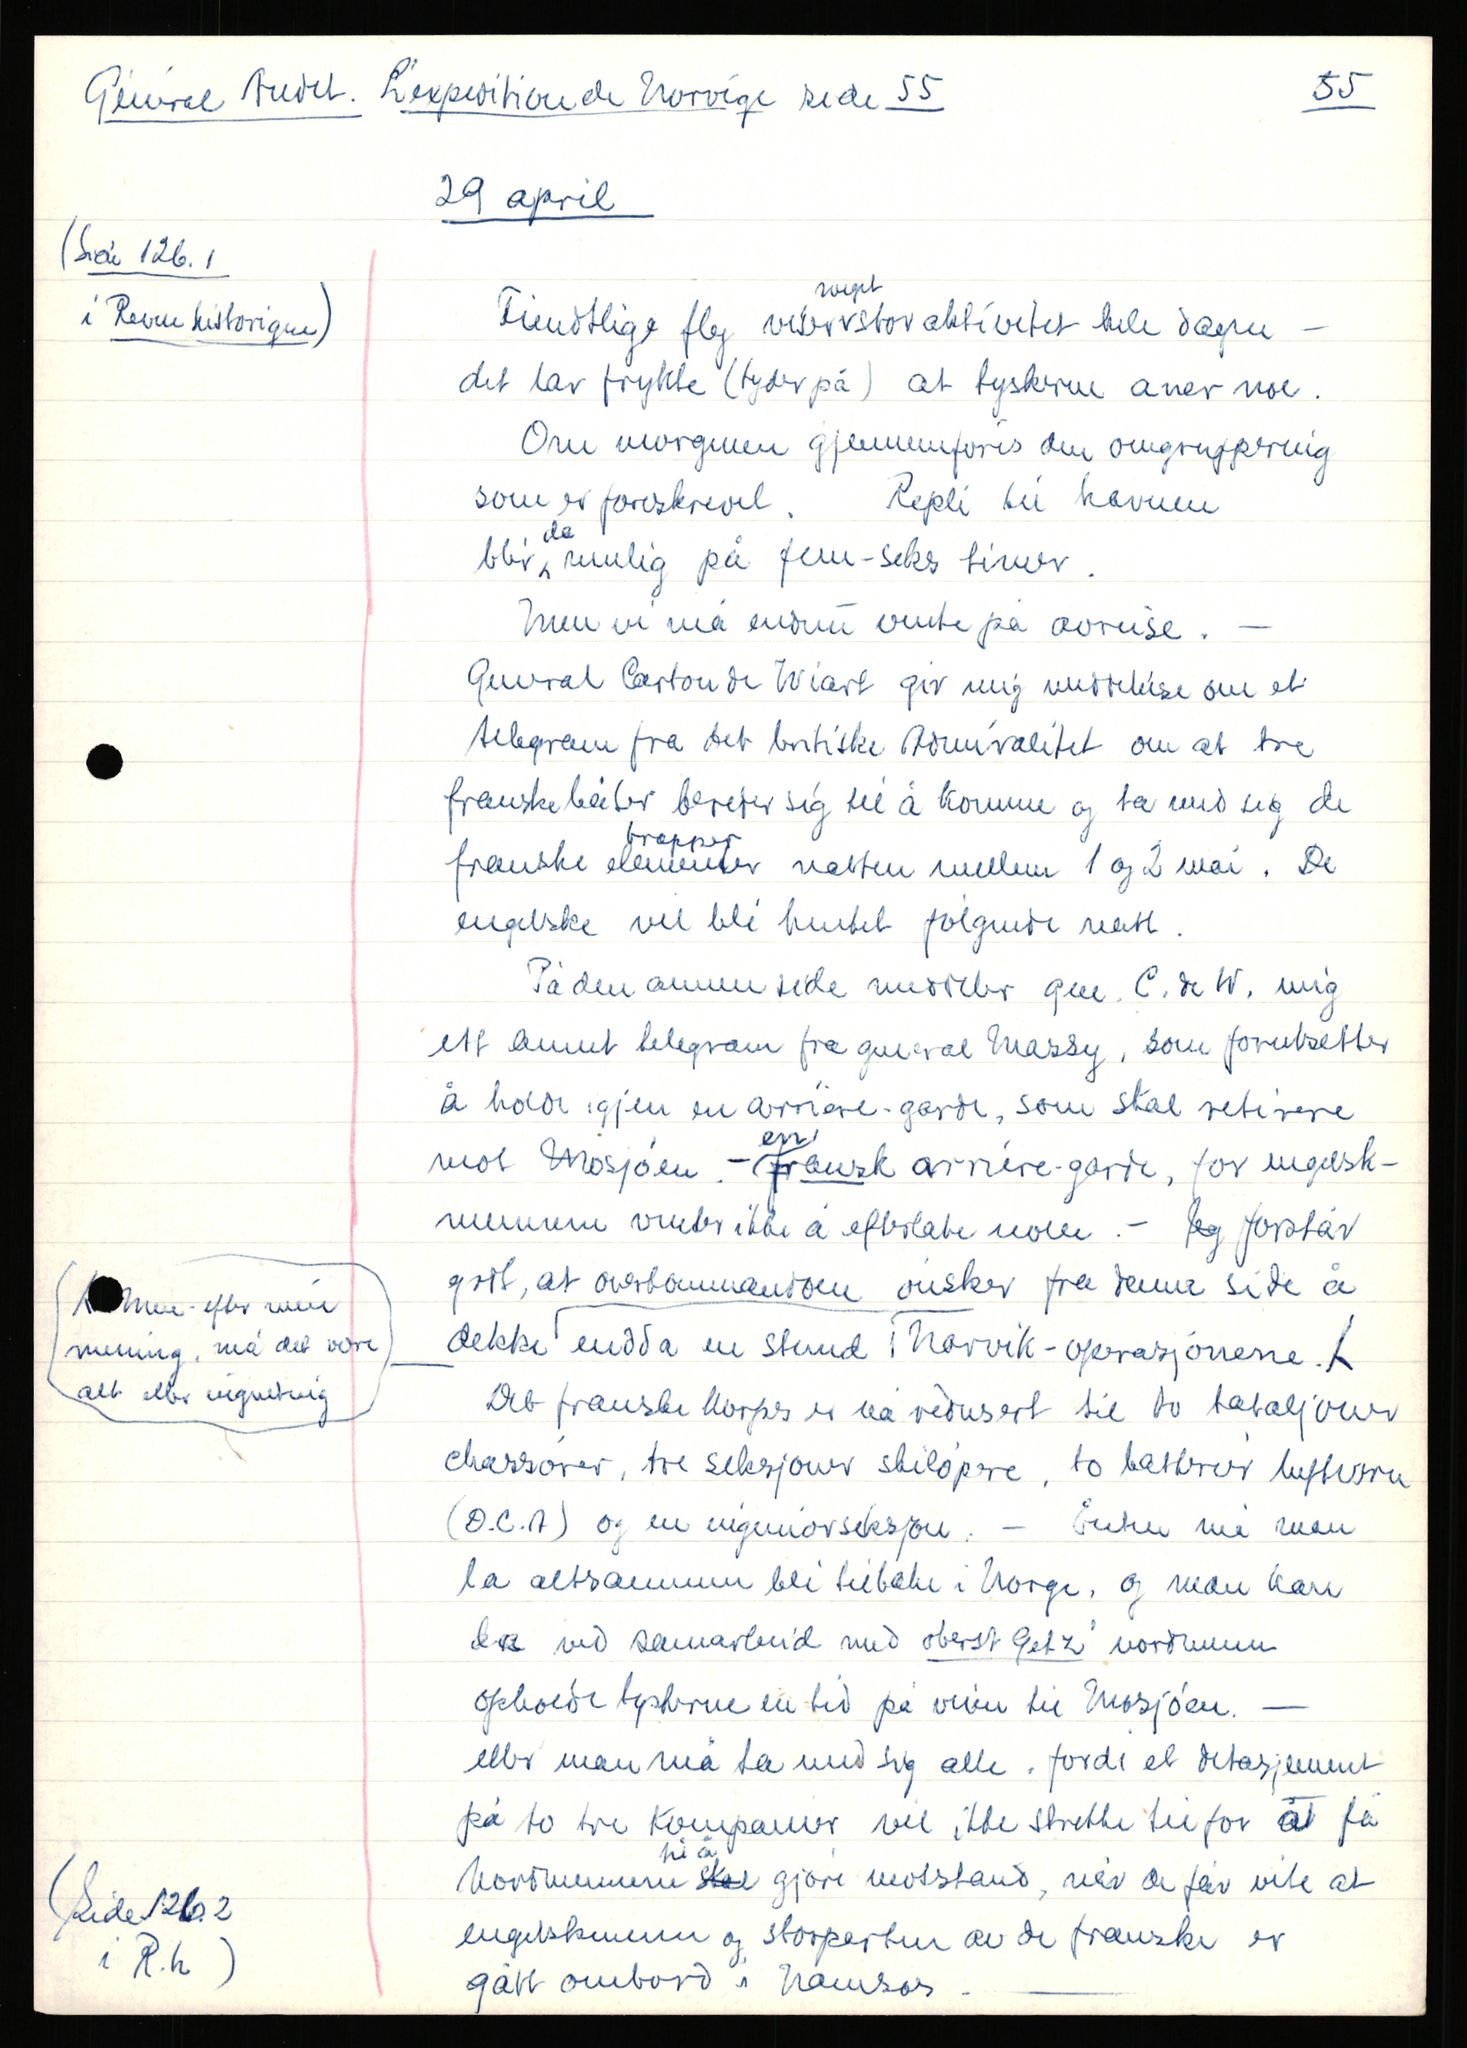 Général Audet. L'expedition de Norvège side 55
55
29 april
(Side 126.1
i Revue historique)
meget
Fiendtlige fly viser stor aktivitet hele dagen –
det lar frykte (tyder på) at tyskerne aner noe.
Om morgenen gjennemføres den omgruppering
som er foreskrevet. Repli til havnen
da
blir mulig på fem-seks timer.
Men vi må ennu vente på avreise. –
General Carton de Wiart gir mig meddelelse om et
telegram fra det britiske Admiralitet om at tre
franske båter bereder sig til å komme og ta med sig de
tropper
franske elementer natten mellem 1 og 2 mai. De
engelske vil bli hentet følgende natt.
På den annen side meddeler gen. C. de W. mig
ett annet telegram fra general Massy, som forutsetter
å holde igjen en arrière-garde, som skal retirere
en
mot Mosjøen. – fransk arrière-garde, for engelsk-
mennene venter ikke å efterlate noen. – Jeg forstår
godt, at overkommandoen ønsker fra denne side å
dekke endda en stund Narvik-operasjonene.
Men - efter min
mening, må det være
alt eller ingenting
Det franske korps er nå redusert til to bataljoner
chassører, tre seksjoner skiløpere, to batterier luftvern
(D.C.A) og en ingeniørseksjon. – Enten må man
la altsammen bli tilbake i Norge, og man kan
da ved samarbeid med oberst Getz' nordmenn
opholde tyskerne en tid på veien til Mosjøen. —
eller man må ta med sig alle, fordi et detasjement
på to tre kompanier vil ikke strekke til for at få
til å
Nordmennene skal gjøre motstand, når de får vite at
engelskmenn og storparten av de franske er
gått ombord i Namsos. —
(Side 126.2
i R.h)